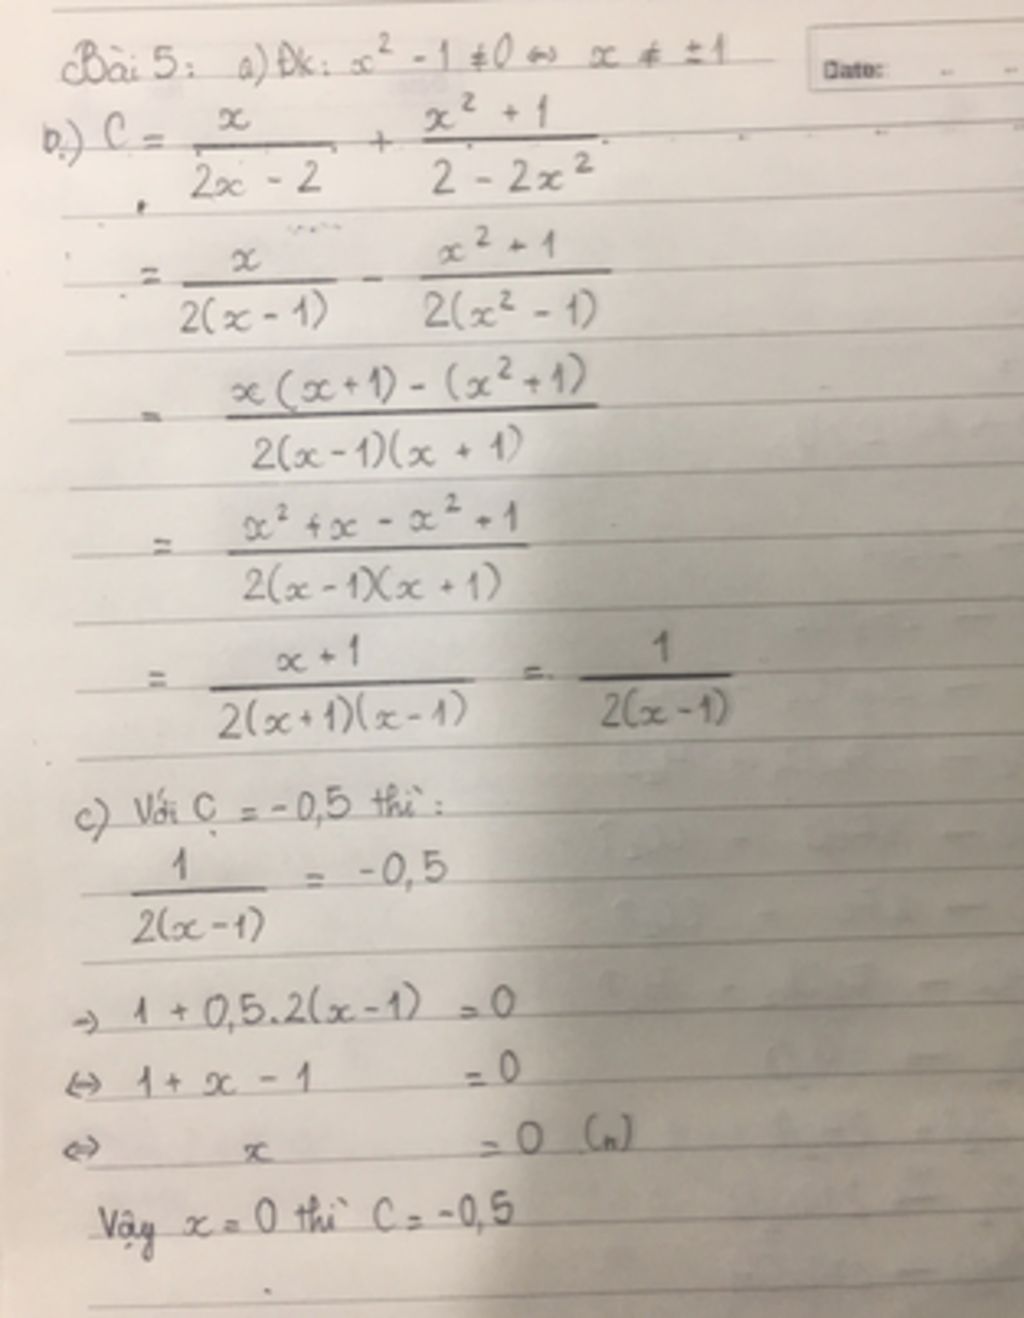 Bài 5: a) Đk: x² - 1 ≠ 0 ⇔ x ≠ ±1
Date:
b.) C = x/(2x - 2) + (x² + 1)/(2 - 2x²)
= x/(2(x - 1)) - (x² + 1)/(2(x² - 1))
= (x(x+1) - (x² + 1))/(2(x-1)(x + 1))
= (x² + x - x² + 1)/(2(x - 1)(x + 1))
= (x + 1)/(2(x+1)(x-1)) = 1/(2(x-1))
c) Với C = -0,5 thì:
1/(2(x-1)) = -0,5
→ 1 + 0,5.2(x-1) = 0
⇔ 1 + x - 1 = 0
⇔ x = 0 (n)
Vậy x = 0 thì C = -0,5